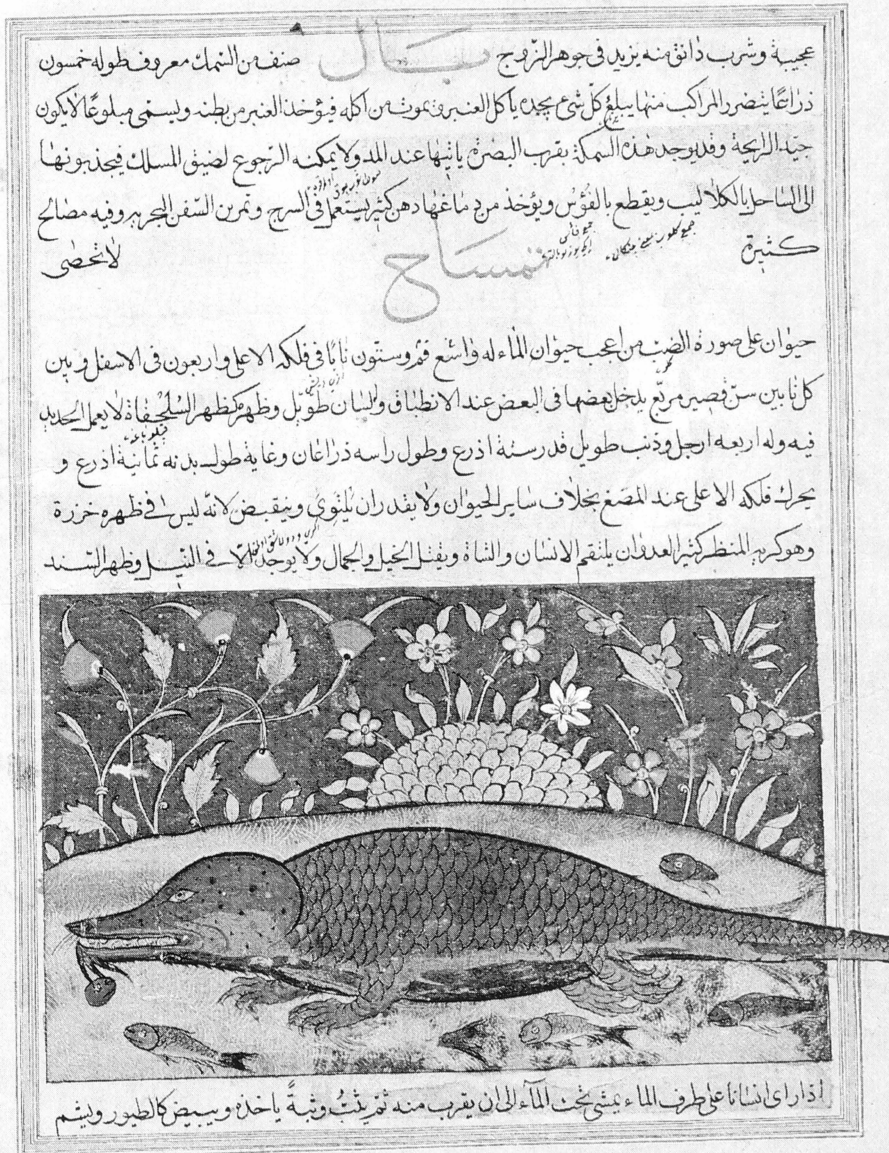 عجيبة وشرب دانق منه يزيد في جوهر الروح بال صنف من السمك معروف طوله خمسون
ذراعًا يتضرر المراكب منها يبلع كل شئ يجده يأكل العنبر فيموت من اكله فيؤخذ العنبر من بطنه ويسمى مبلوعًا لا يكون
جيد الرايحة وقد يوجد هذه السمكة بقرب البصرة يأتيها عند المد ولا يمكنه الرجوع لضيق المسلك فيجذبونها
الى الساحل بالكلاليب ويقطع بالفؤس ويؤخذ من دماغها دهن كثير يستعمل في السرج وتمرين السفن البحرية وفيه مصالح
كثيرة لا تحصى
تمساح
حيوان على صورة الضب من اعجب حيوان الماء له واسع فم وستون نابًا في فكه الاعلى واربعون في الاسفل وبين
كل نابين سن قصير مربع يدخل بعضها في البعض عند الانطباق ولسان طويل وظهره كظهر السلحفاة لا يعمل الحديد
فيه وله اربعه ارجل وذنب طويل قدر ستة اذرع وطول راسه ذراعان وغاية طول بدنه ثمانية اذرع و
يحرك فكه الاعلى عند المضغ بخلاف ساير الحيوان ولا يقدر ان يلتوي وينقبض لانه ليس في ظهره خرزة
وهو كريه المنظر كثير العدوان يلتقم الانسان والشاة ويقتل الخيل والجمال ولا يوجد الا في النيل وظهر السند
اذا راى انسانا على طرف الماء يمشى تحت الماء الى ان يقرب منه ثم يثب وثبةً ياخذه ويبيض كالطيور ويشم